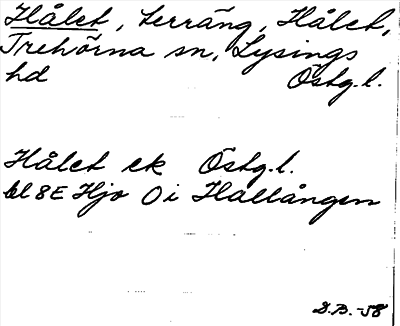 Hålet, terräng, Hålet,
Trehörna sn, Lysings
hd Östg.l.
Hålet ek Östg.l.
bl 8E Hjo O i Hallången
D.B.-58